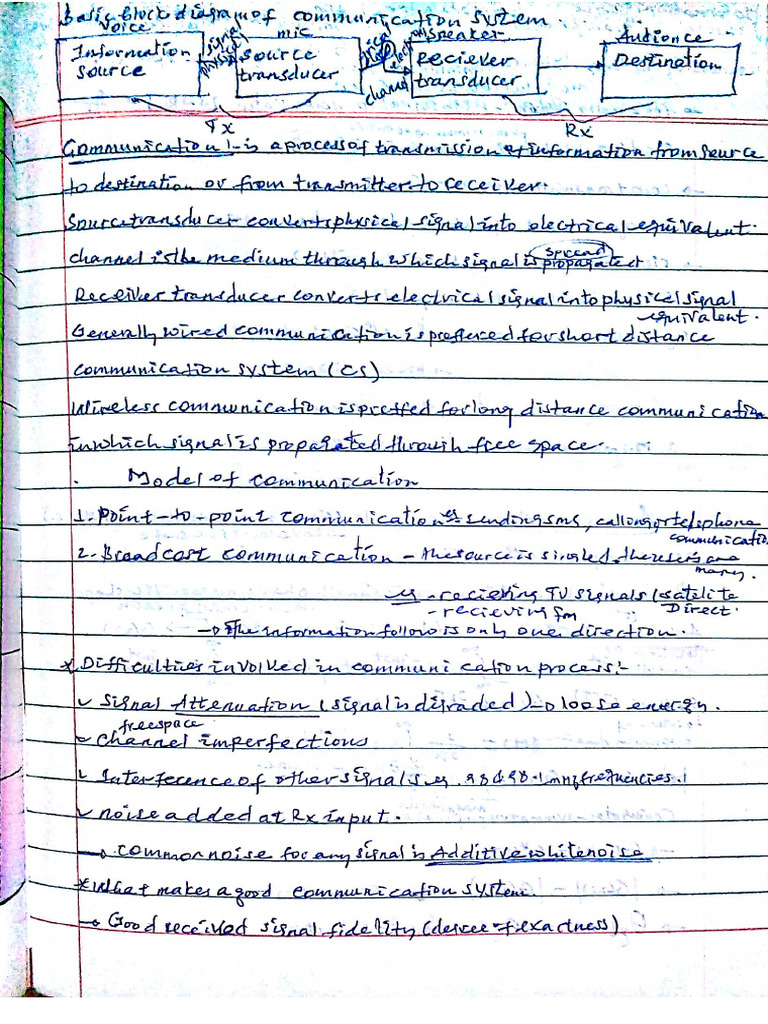 Basic block diagram of communication system.
voice
mic
Speaker
Audience
Information source
signal
physical
source transducer
channel
Reciever transducer
Destination
Tx
Rx
Communication :- is a process of transmission of information from source
to destination or from transmitter to receiver.
Source transducer converts physical signal into electrical equivalent.
spread
channel is the medium through which signal is propagated
Receiver transducer converts electrical signal into physical signal
equivalent.
Generally wired communication is preffered for short distance
communication system (CS)
Wireless communication is preffed for long distance communication
in which signal is propagated through free space.
. Model of communication
1. Point-to-point communication eg sending sms, calling or telephone
communication
2. Broadcast communication - the source is singled, the users are
many.
eg - recieving TV signals (satelite
- recieving fm Direct.
→ The information follow is only one direction.
* Difficulties involved in communication process:-
✓ Signal Attenuation (signal is digraded) → loose energy.
freespace
✓ channel imperfections
✓ Interference of other signals eg. 98 & 98.1 mhz frequencies.
✓ noise added at Rx input.
→ common noise for any signal is Additive white noise
* What makes a good communication system.
→ Good received signal fidelity (degree of exactness)